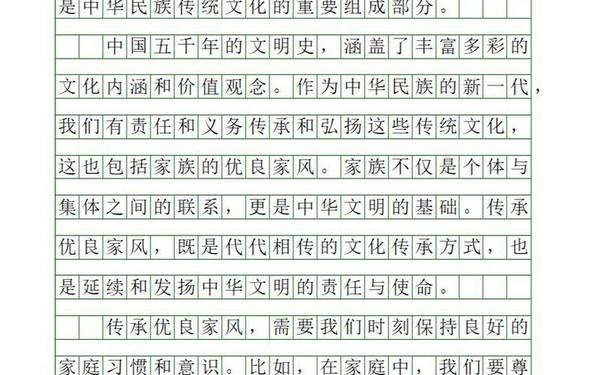 是中华民族传统文化的重要组成部分。
中国五千年的文明史，涵盖了丰富多彩的
文化内涵和价值观念。作为中华民族的新一代，
我们有责任和义务传承和弘扬这些传统文化，
这也包括家族的优良家风。家族不仅是个体与
集体之间的联系，更是中华文明的基础。传承
优良家风，既是代代相传的文化传承方式，也
是延续和发扬中华文明的责任与使命。
传承优良家风，需要我们时刻保持良好的
家庭习惯和意识。比如，在家庭中，我们要尊